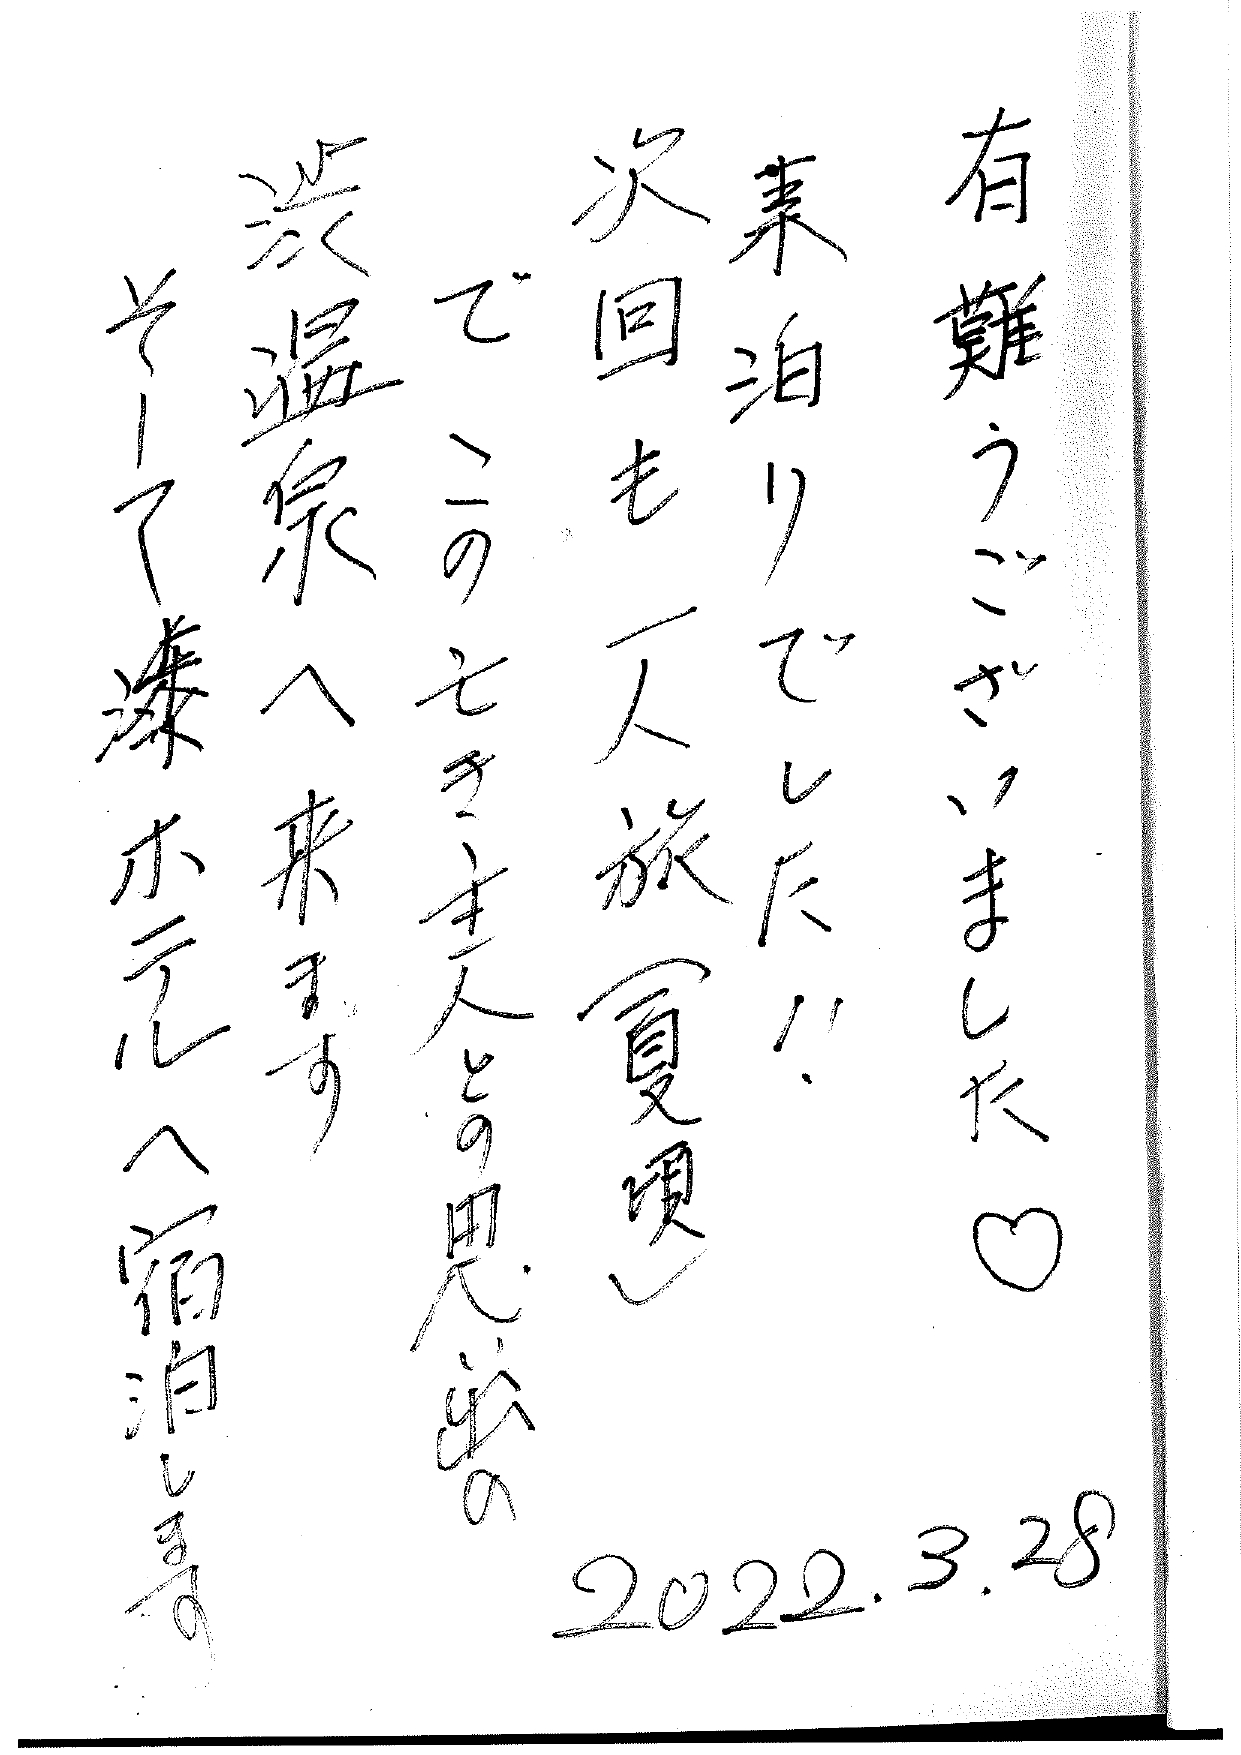 有難うございました♡
素泊りでした!!
次回も一人旅(夏頃)
でこの亡き主人との思い出の
渋温泉へ来ます
そしてホテルへ宿泊します
2022.3.28